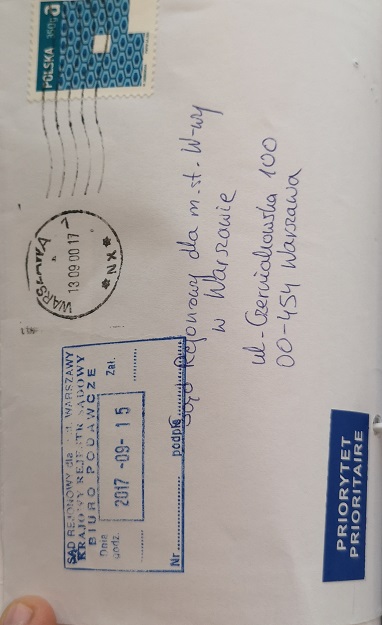 POLSKA
WARSZAWA
13 09 00 17
* NX *
SĄD REJONOWY dla WARSZAWY
KRAJOWY REJESTR SĄDOWY
BIURO PODAWCZE
Dnia
godz.
2017 -09- 15
Zał.
Nr podpis
Sąd Rejonowy dla m.st. W-wy
w Warszawie
ul. Czerniakowska 100
00-454 Warszawa
PRIORYTET
PRIORITAIRE